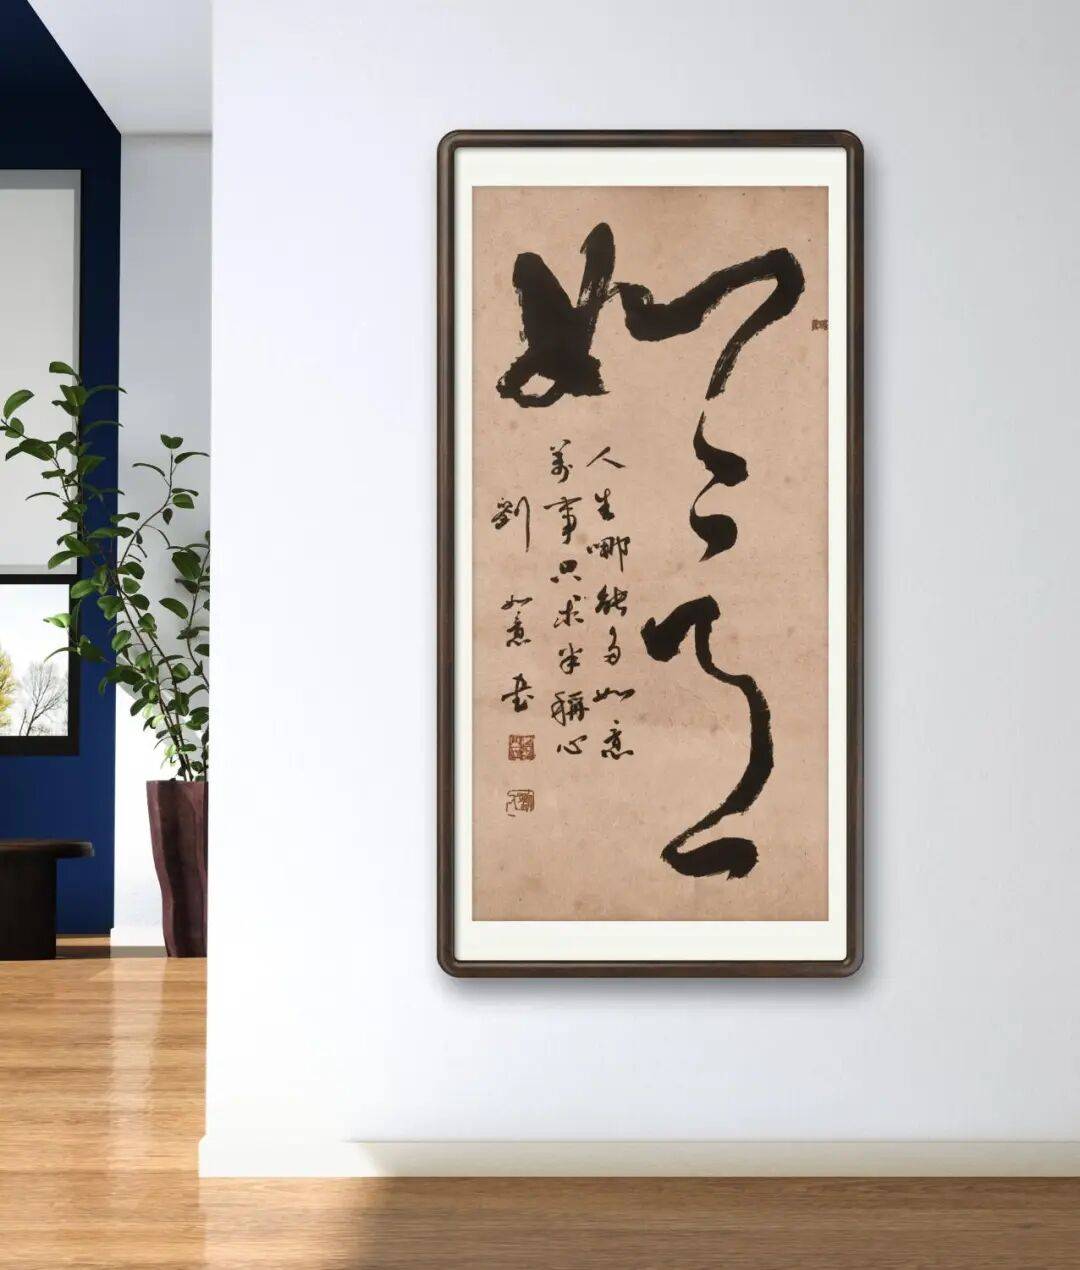 如意
人生哪能多如意
萬事只求半稱心
劉如意書